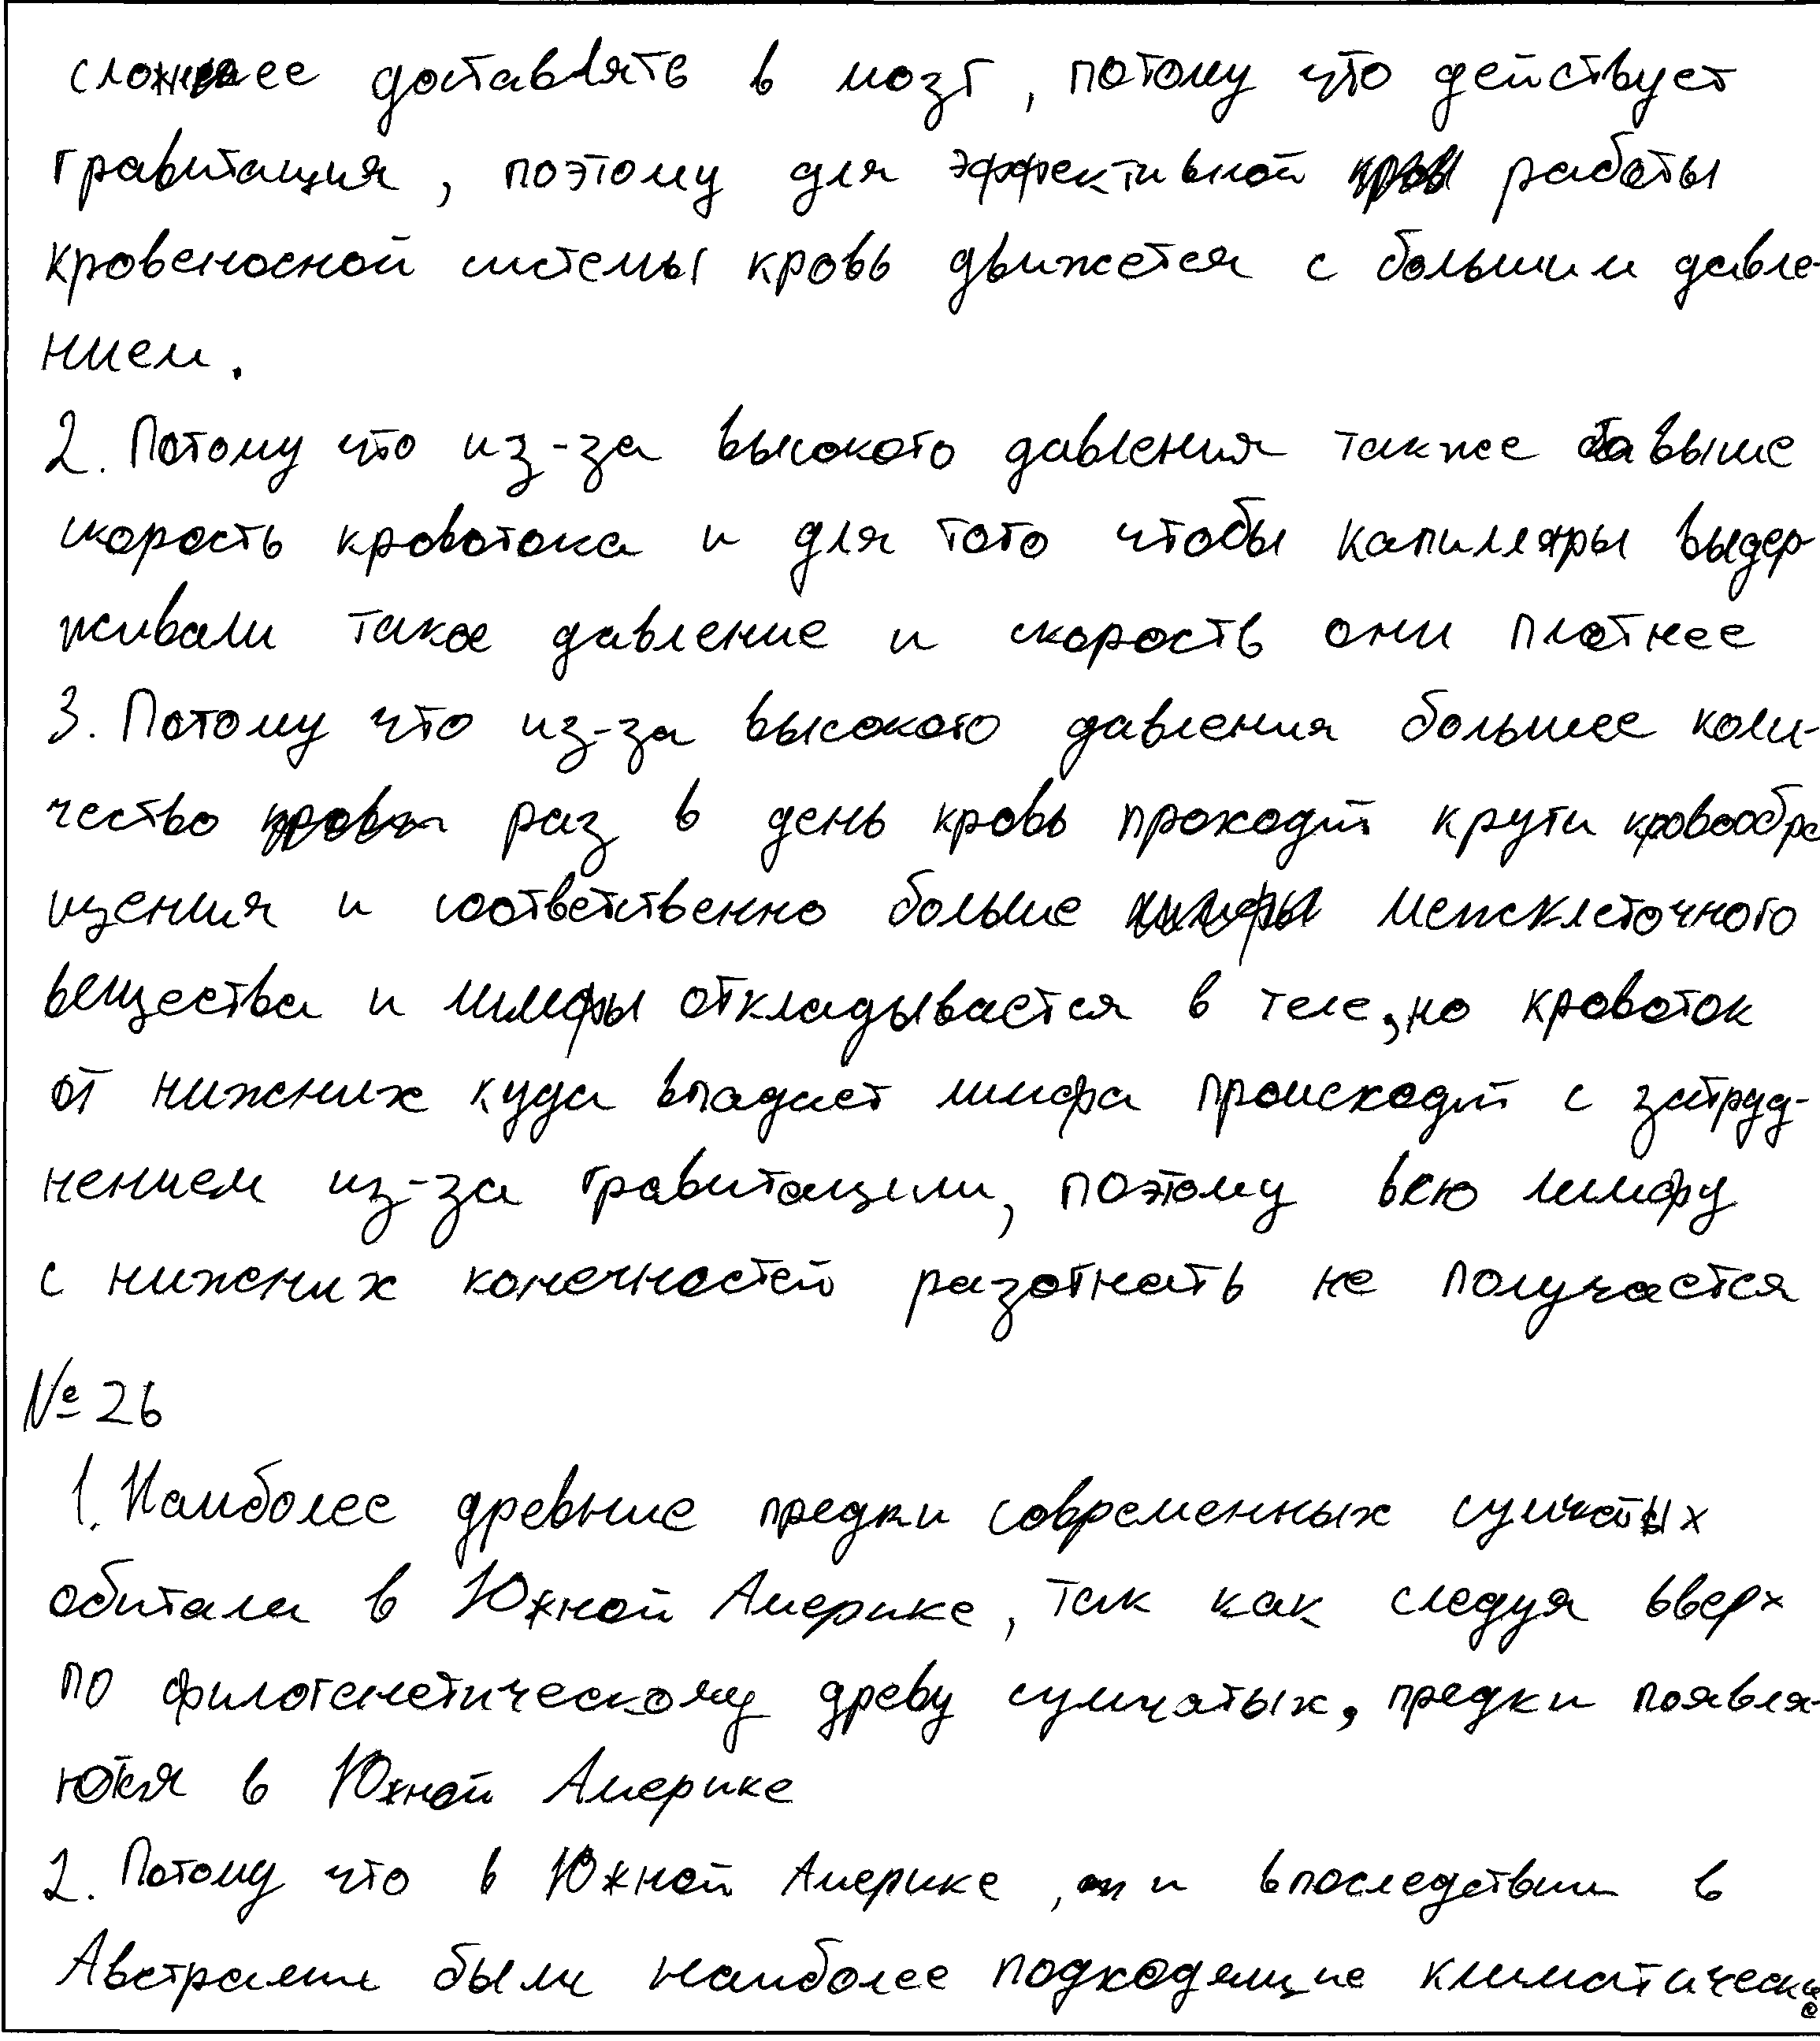 сложнее доставлять в мозг, потому что действует
гравитация, поэтому для эффективной работы
кровеносной системы кровь движется с большим давле-
нием.
2. Потому что из-за высокого давления также выше
скорость кровотока и для того чтобы капилляры выдер-
живали такое давление и скорость они плотнее
3. Потому что из-за высокого давления большее коли-
чество раз в день кровь проходит круги кровообра
щения и соответственно больше межклеточного
вещества и лимфы откладывается в теле, но кровоток
от нижних куда впадает лимфа происходит с затруд-
нением из-за гравитации, поэтому всю лимфу
с нижних конечностей разогнать не получается
№26
1. Наиболее древние предки современных сумчатых
обитали в Южной Америке, так как следуя вверх
по филогенетическому древу сумчатых, предки появля-
ются в Южной Америке
2. Потому что в Южной Америке, и впоследствии в
Австралии были наиболее подходящие климатические